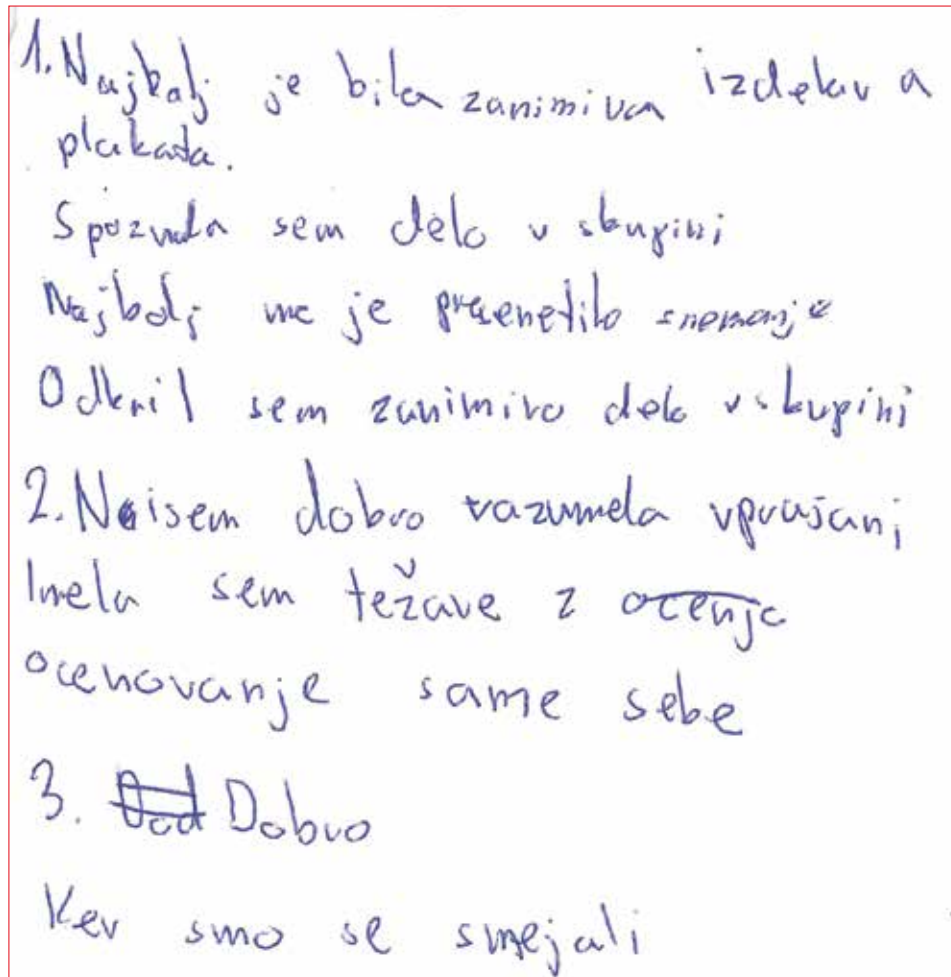 1. Najbalj je bila zanimiva izdelava
plakata.
Spoznala sem delo v skupini
Najbolj me je presenetilo snemanje
Odkril sem zanimivo delo v skupini
2. Nisem dobro razumela vprašanj
Imela sem težave z ocenje
ocenovanje same sebe
3. Dod Dobro
Ker smo se smejali